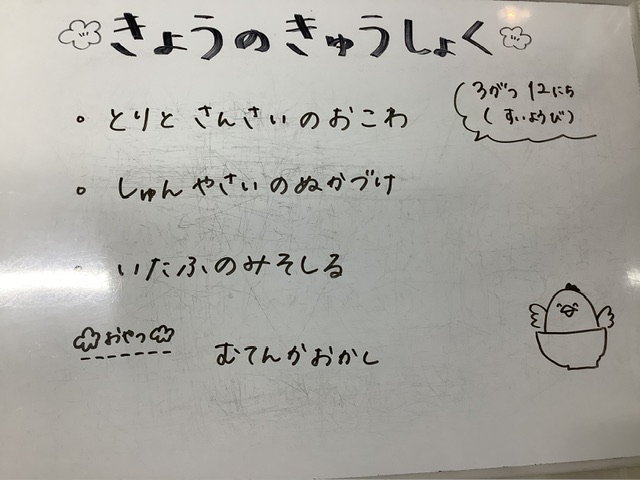 きょうのきゅうしょく
3がつ 12にち
(すいようび)
。とりと さんさいのおこわ
。しゅん やさいのぬかづけ
。いたふのみそしる
おやつ
むてんかおかし